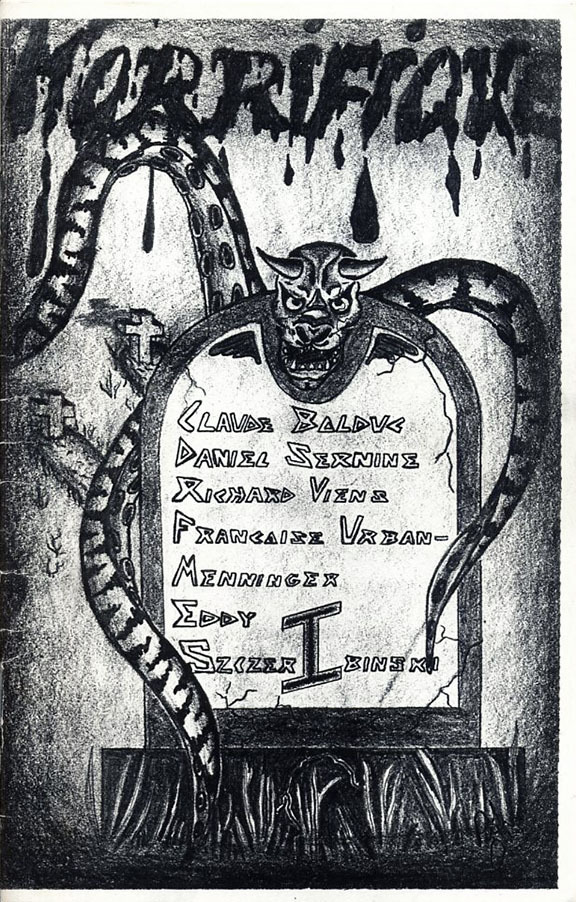 HORRIFIQUE
CLAUDE BOLDUC
DANIEL SERNINE
RICHARD VIENS
FRANCAISE URBAN-
MENNINGER
EDDY
SZCZER I BINSKI